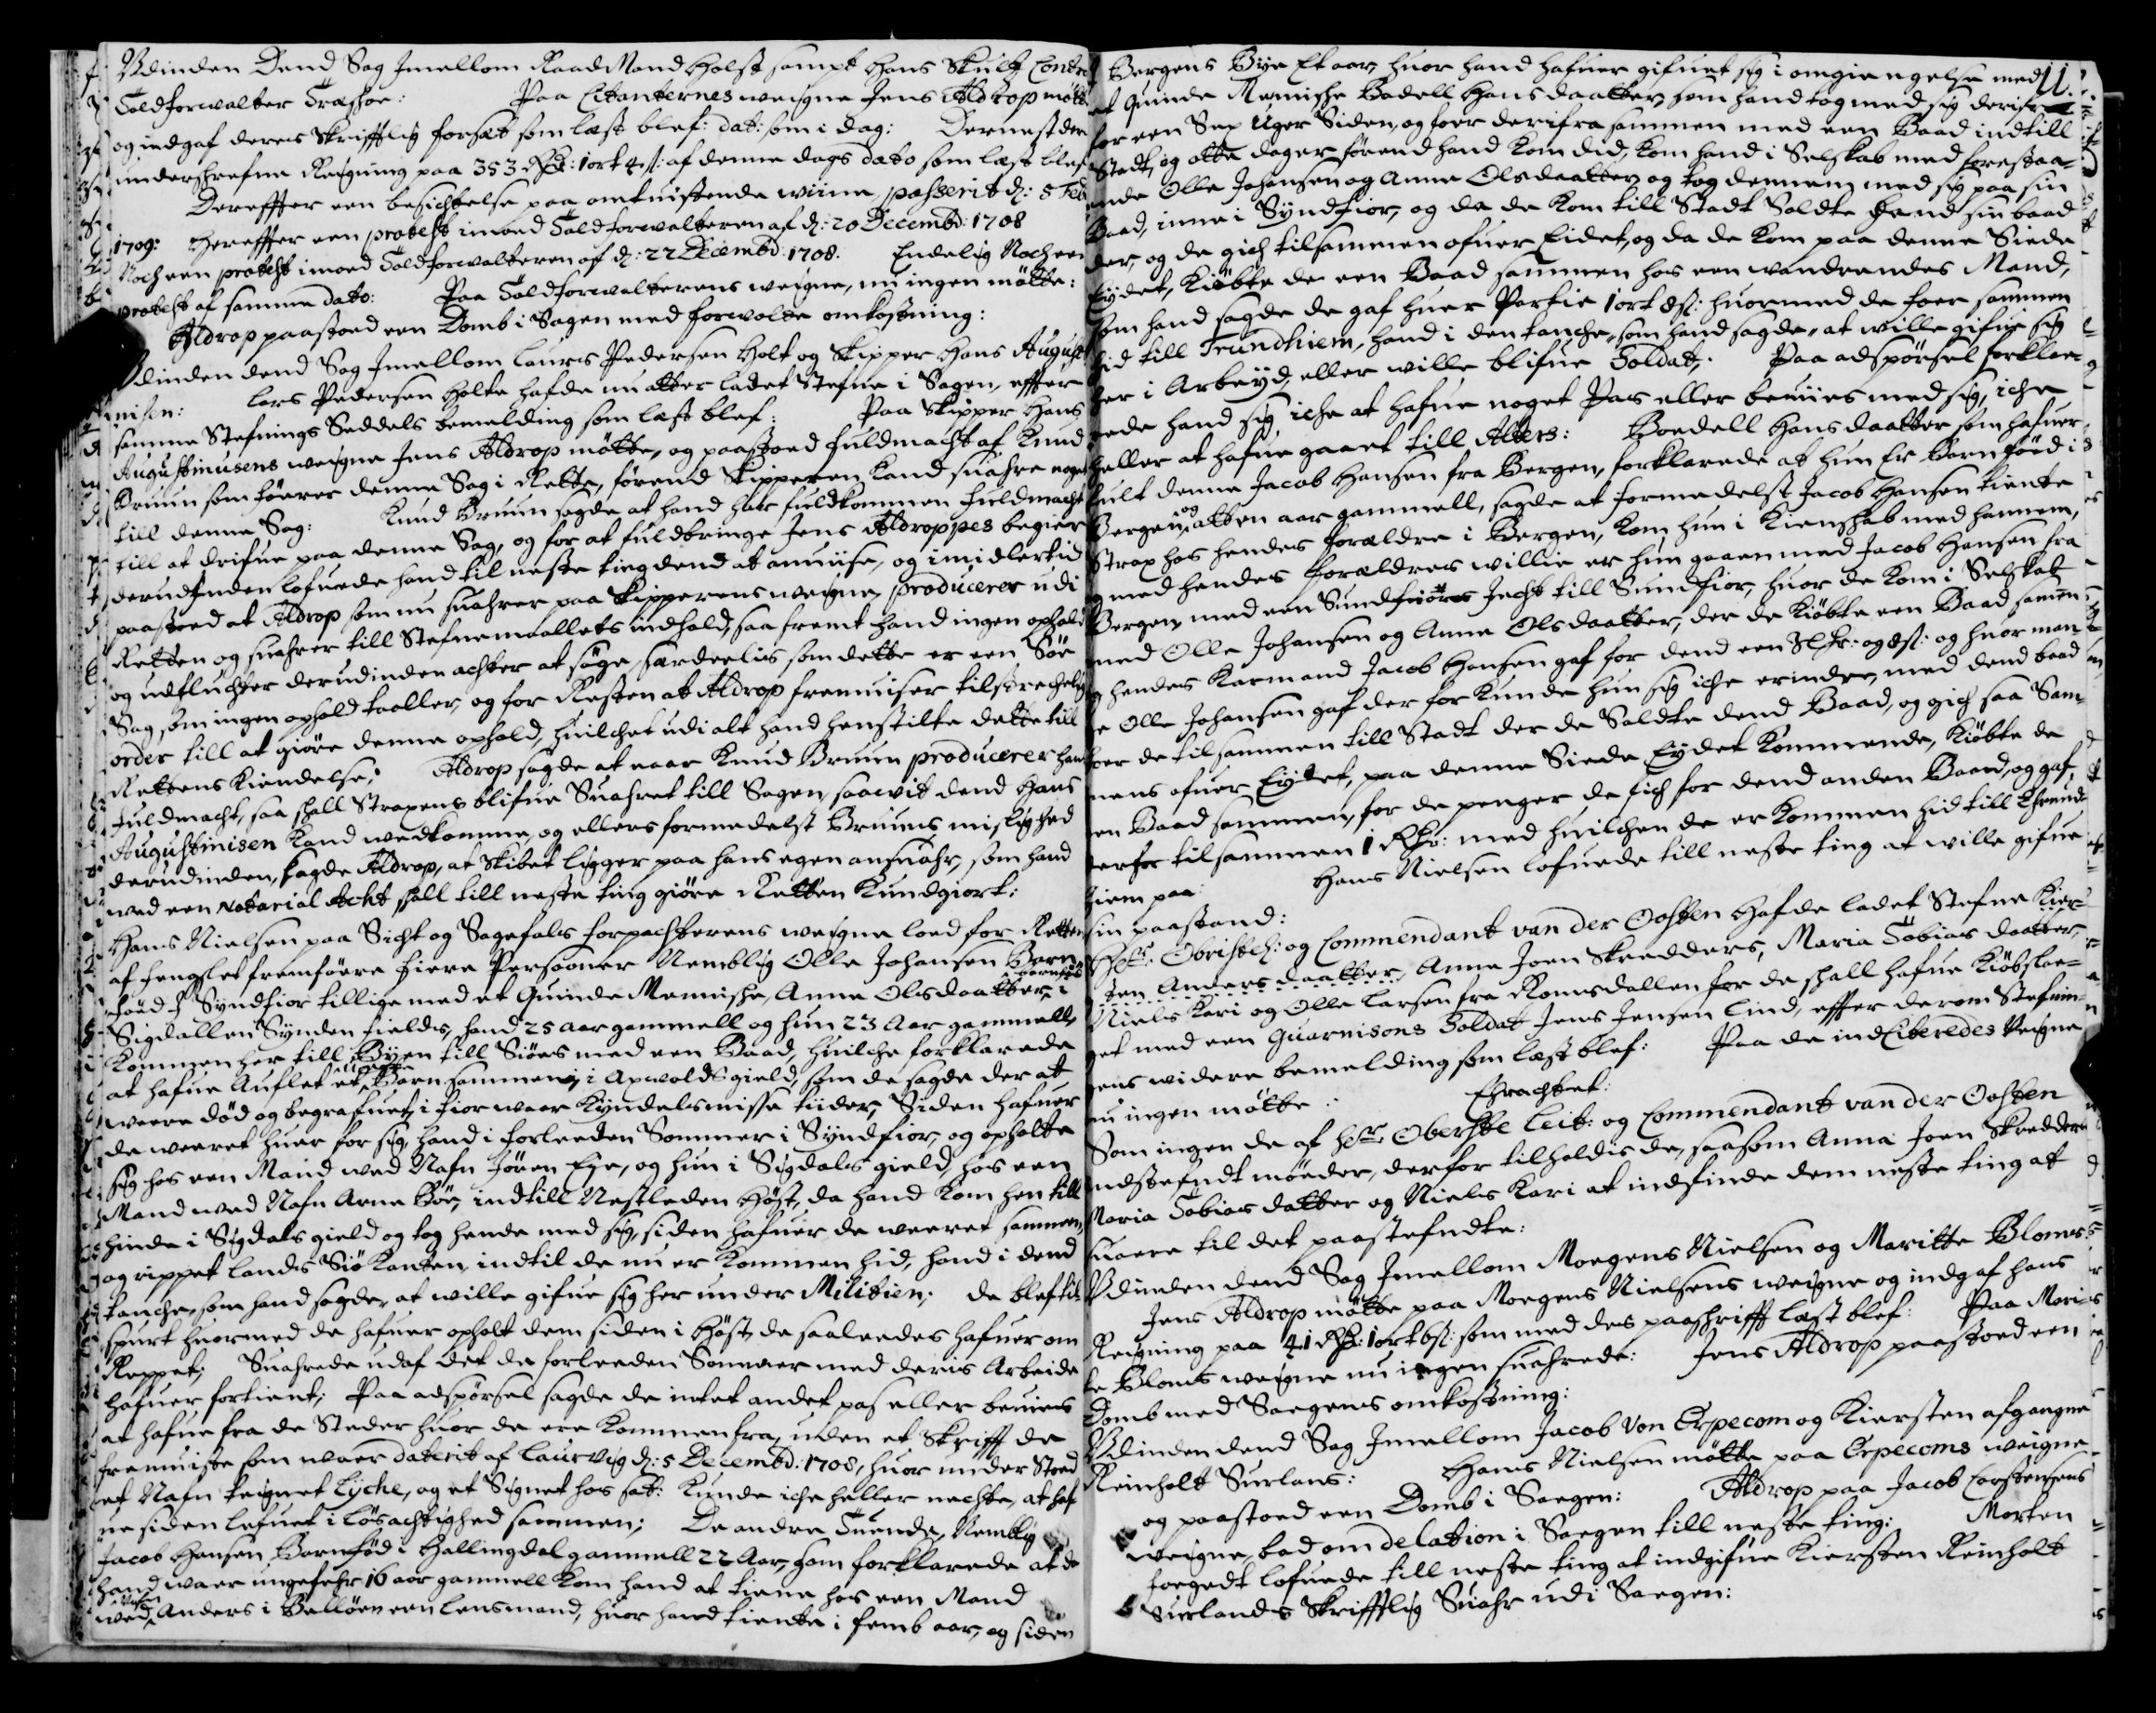 Vdinden Dend Sag Imellom Raad Mand Holst sampt Hans Skultz Contra
Toldforwalter Træshoe: Paa Citanternes weigne Jens Aldrop mötte
og indgaf deres Skrifftlig forsæt som læst blef: dat: som i dag: Dernest den
underschrefne Reigning paa 353 Rdr: 1 ort 4 s: af denne dags dato som læst blef
Dereffter een besichtelse paa omtuistende wiine, passerit d: 5 Feb
1709: Hereffter een protest imoed Toldforwalteren af d: 20 Decembd: 1708
Noch een protest imoed Toldforwalteren af d: 22 Decembd: 1708. Endelig Noch een
protest af samme dato: Paa Toldforwalterens weigne, nu ingen mötte:
Aldrop paastoed een Domb i Sagen med forwolte omkostning:
Vdinden dend Sag Imellom Laurs Pedersen Holt og Skipper Hans August
inisen: Lars Pedersen Holte hafde nu atter ladet Stefne i Sagen, effter
samme Stefnings Seddels bemelding som læst blef: Paa Skipper Hans
Augustinusens weigne Jens Aldrop mötte, og paastoed fuldmacht af Knud
Bruun som förer denne Sag i Rette, förend Skipperen kand suahre noget
till denne Sag: Knud Bruun sagde at hand har fuldkommen fuldmacht
till at drifue paa denne Sag, og for at fuldbringe Jens Aldroppes begier
derudinden lofuede hand til neste ting dend at anuiise, og imidlertid
paastoed at Aldrop som nu suahrer paa Skipperens weigne, producerer udi
Retten og suahrer till Stefnemaallets indhold, saa fremt hand ingen ophold
og udfluchter derudinden achter at söge, særdeelis som dette er een Söe
Sag, som ingen ophold taaller, og for Resten at Aldrop fremuiser tilstrechelig
order till at giöre denne ophold, huilchet udi alt hand henstilte dette till
Rettens Kiendelse; Aldrop sagde at naar Knud Bruun producerer hans
fuldmacht, saa skall Straxens blifue Suahret till Sagen, saawit dend Hans
Augustinisen kand wedkomme, og ellers formedelst Bruuns mislighed
derudinden, sagde Aldrop, at Skibet ligger paa hans egen ansuahr, som hand
wed een Notarial Acht skall till neste ting giöre Retten kundgiort:
Hans Nielsen paa Sicht og Sagefals forpachterens weigne loed for Retten
af fenglet fremföere fiere Persooner Nemblig Olle Johansen Barn
föed i Syndfior tillige med et Quinde Mennishe, Anne Olsdaatter, barnföd i
Sigdallen Synden fields, hand 25 aar gammell og hun 23 Aar gammell,
kommen her till Byen till Siöes med een Baad, huilche forklarede
at hafue Auflet et uægte Barn sammen, i Apwolds gield, som de sagde der at
were död og begrafuet, i fior waar Kyndelsmisse tiider, Siden hafuer
de weret huer for sig, hand i forleeden Sommer i Syndfior, og opholte
sig hos een Mand wed Nafn Jören Eye, og hun i Sigdals gield, hos een
Mand wed Nafn Arne Böe, indtill Nestleden Höst, da hand kom hen till
hinde i Sigdals gield og tog hende med sig, siden hafuer de weeret sammen,
og rippet lands Siö kanten, indtil de nu er kommen hid, hand i dend
tanche, som hand sagde, at wille gifue sig her under Militien; de blef til
spurt huormed de hafuer opholt dem siden i Höst, da saaledes hafuer om
Reppet; Suahrede udaf det de forleeden Sommer med deris Arbeide
hafuer fortient; Paa adspörsel sagde de intet andet pas eller beuiis
at hafue fra de Steder huor de ere kommen fra, uden et Skrifft de
fremuiste som waer daterit af Laurvig d: 5 Decembd: 1708, huor under Stoed
et Nafn teignet Lyche, og et Signet hos sat: kunde iche heller nechte, at haf
ue siden lefuet i lösachtighed sammen; De andre Tuende, Nemblig
Jacob Hansen, Barnföd i Hallingdal gammell 22 Aar, som forklarede at da
hand waer ungefehr 16 aar gammell kom hand at tiene hos een Mand
wed Nafn Anders i Ballöen een lensmand, huor hand tiente i femb aar, og siden
11.
i Bergens Bye Et aar, huor hand hafuer gifuet sig i omgiengelse med
et Quinde Mennishe Bodell Hans daatter, som hand tog med sig derifra
for een Sex Uger Siden, og foer derifra sammen med een Baad indtill
Stadt, og otte dager förend hand kom did, kom hand i Selskab med forestaa-
ende Olle Johansen og Anne Olsdaatter, og tog dennem med sig paa sin
Baad, inne i Syndfior, og da de kom till Stadt Soldte hand sin baad
der, og de gich tilsammen ofuer Eidet, og da de kom paa denne Siede
Eydet, kiöbte de een Baad sammen hos een wandrendes Mand,
som hand sagde de gaf huer Partie 1 ort 8 s: huormed de foer sammen
hid till Trundhiem, hand i den tanche, som hand sagde, at wille gifue sig
her i Arbeyd, eller wille blifue Soldat; Paa adspörsel forklar-
rede hand sig iche at hafue noget Pas eller beuiis med sig, iche
heller at hafue gaaet till Alters: Boedell Hans daatter som hafuer
fult denne Jacob Hansen fra Bergen, forklarede at hun Er Barn föed i
Bergen, og atten aar gammell, sagde at formedelst Jacob Hansen tiente
Strax hos hendes forældre i Bergen, kom hun i Kienskab med hannem,
og med hendes forældres willie er hun gaaen med Jacob Hansen fra
Bergen, med een Sundfiörs Jacht till Sundfior, huor de kom i Selskab
med Olle Johansen og Anne Olsdaatter, der de kiöbte een Baad samen
og hendes Karmand Jacob Hansen gaf for dend een Slr: og 8 s: og huor man-
ge Olle Johansen gaf der for kunde hun sig iche erindre, med dend baad
foer de tilsammen till Stadt der de Soldte dend Baad, og gich saa Sam-
mens ofuer Eydet, paa denne Siede Eydet kommende, kiöbte de
een Baad sammen, for de penger de fich for dend anden Baad, og gaf
derfor tilsammen 1 Rdr: med huilchen de er kommen hid till Thrund-
hiem paa: Hans Nielsen lofuede till neste ting at wille gifue
sin paastand:
Hr. Obristl: og Commendant van der Oosten Hafde ladet Stefne Kier-
sten Anders daatter, Anne Joen Skredders, Maria Tobias daatter,
Niels Kari og Olle Larsen fra Romsdallen for de shall hafue kiöbslae-
get med een Guarnisons Soldat Jens Jensen Lind, effter derom Stefnin-
gens widere bemelding som læst blef: Paa de ind Citeredes Weigne
nu ingen mötte: Erachtet:
Som ingen de af Hr. Oberste Leit: og Commendant van der Oosten
indstefndt möeder, derfor tilholdis de, saasom Anna Joen Skredders
Maria Tobias datter og Niels Kari at indfinde dem neste ting at
suare til det paastefndte:
Vdinden dend Sag Imellom Moegens Nielsen og Maritte Bloms:
Jens Aldrop mötte paa Moegens Nielsens weigne og indgaf hans
Reigning paa 41 Rdr: 1 ort 6 s: som med des paaskrifft læst blef: Paa Mari-
te Bloms weigne nu ingen suahrede: Jens Aldrop paastoed een
Domb med Saegens omkostning:
Vdinden dend Sag Imellom Jacob Von Erpecom og Kiersten afgangne
Reinholt Surlans: Hans Nielsen mötte paa Erpecoms weigne
og paastoed een Domb i Saegen: Aldrop paa Jacob Carstensens
weigne, bad om delation i Saegen till neste ting: Morten
foegedt lofuede till neste ting at indgifue Kiersten Reinholt
Surlands Skrifftlig Suahr udi Saegen: